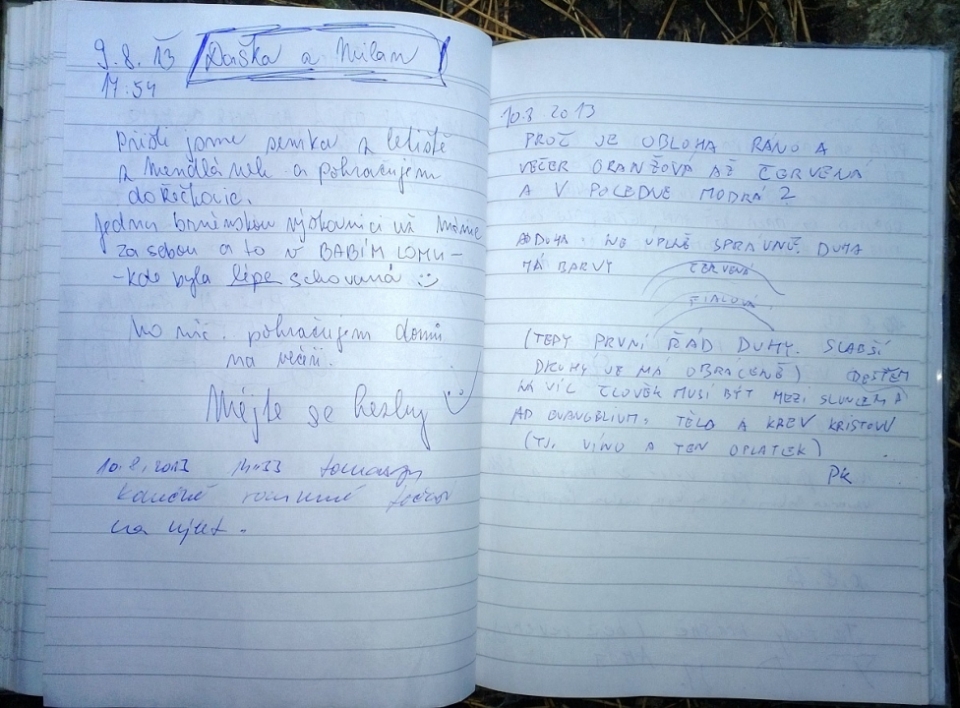 9.8.13 Daška a Milan
17:54
Přišli jsme semka z letiště
z Mendlánek a pokračujem
do Řečkovic.
Jednu brněnskou výškavnici už máme
za sebou a to v BABÍM LOMU -
- kde byla lépe schovaná
No nic. pokračujem domů
na večeři.
Mějte se hezky
10.8.2013 14:33
na výlet.
10.8 2013
PROČ JE OBLOHA RÁNO A
VEČER ORANŽOVÁ AŽ ČERVENÁ
A V POLEDNE MODRÁ?
AD DUHA: NE ÚPLNĚ SPRÁVNĚ. DUHA
MÁ BARVY ČERVENÁ
FIALOVÁ
(TEDY PRVNÍ ŘÁD DUHY. SLABŠÍ
DRUHÝ JE MÁ OBRÁCENĚ) DEŠTĚM
NA VÍC ČLOVĚK MUSÍ BÝT MEZI SLUNCEM A
AD EVANGELIUM: TĚLO A KREV KRISTOVU
(TJ. VÍNO A TEN OPLATEK)
PK